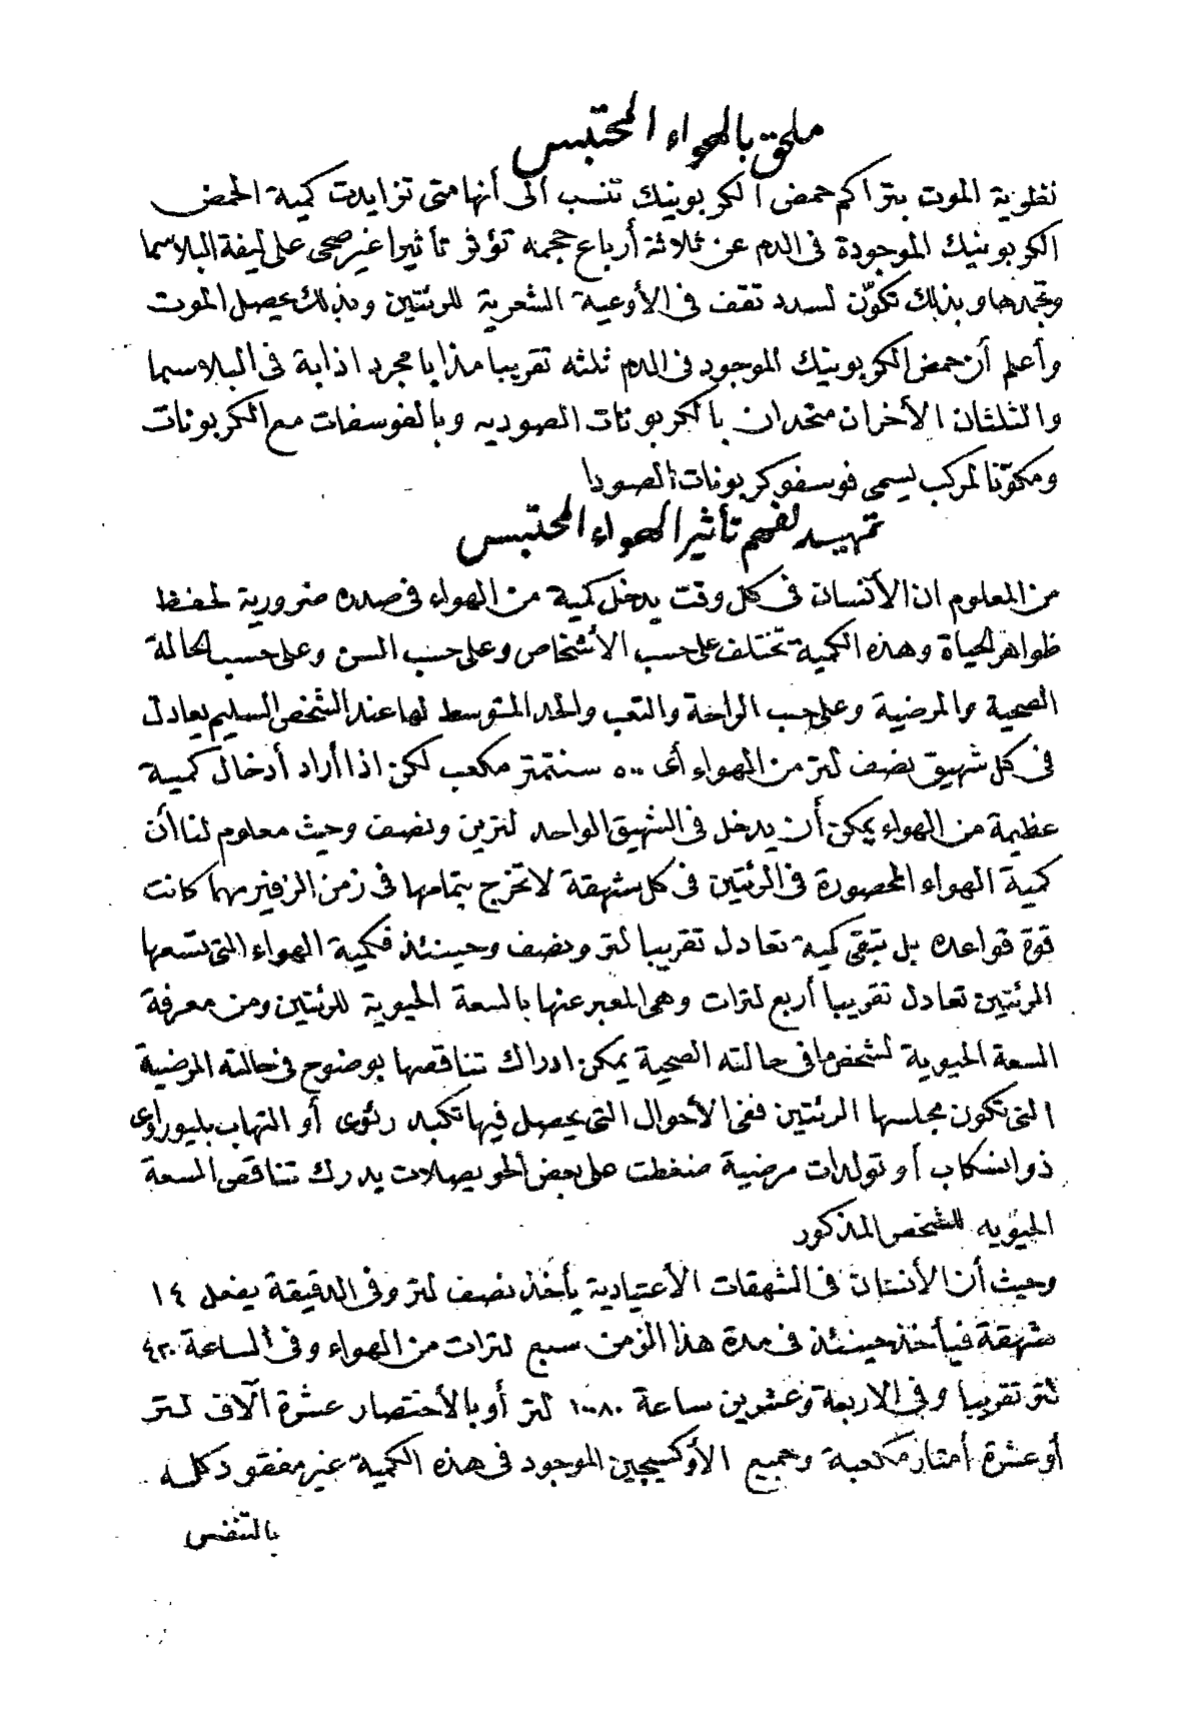 ملحق بالهواء المحتبس
نظرية الموت بتراكم حمض الكربونيك تنسب الى أنها متى تزايدت كمية الحمض
الكربونيك الموجودة فى الدم عن ثلاثة أرباع حجمه تؤثر تأثيرا غير صحى على ليفة البلاسما
وتجمدها وبذلك تكوّن لسدد تقف فى الأوعية الشعرية للرئتين وبذلك يحصل الموت
وأعلم أن حمض الكربونيك الموجود فى الدم ثلثه تقريبا مذابا مجرد اذابة فى البلاسما
والثلثان الأخران متحدان بالكربونات الصوديه وبالفوسفات مع الكربونات
ومكوّنا لمركب يسمى فوسفوكربونات الصودا
تمهيد لفهم تأثير الهواء المحتبس
من المعلوم ان الأنسان فى كل وقت يدخل كمية من الهواء فى صدره ضرورية لحفظ
ظواهر الحياة وهذه الكمية تختلف على حسب الأشخاص وعلى حسب السن وعلى حسب الحالة
الصحية والمرضية وعلى حسب الراحة والتعب والحد المتوسط لها عند الشخص السليم يعادل
فى كل شهيق نصف لتر من الهواء أى ٥٠٠ سنتمتر مكعب لكن اذا أراد أدخال كمية
عظيمة من الهواء يمكن أن يدخل فى الشهيق الواحد لترين ونصف وحيث معلوم لنا أن
كمية الهواء المحصورة فى الرئتين فى كل شهقة لا تخرج بتمامها فى زمن الزفير مهما كانت
قوة قواعده بل تبقى كمية تعادل تقريبا لتر ونصف وحينئذ فكمية الهواء التى تسعها
الرئتين تعادل تقريبا أربع لترات وهى المعبر عنها بالسعة الحيوية للرئتين ومن معرفة
السعة الحيوية لشخص ما فى حالته الصحية يمكن ادراك تناقصها بوضوح فى حالته المرضية
التى تكون مجلسها الرئتين ففى الأحوال التى يحصل فيها تكبد رئوى أو التهاب بليوراوى
ذو انسكاب أو تولدات مرضية ضغطت على بعض الحويصلات يدرك تناقص السعة
الحيويه للشخص المذكور
وحيث أن الأنسان فى الشهقات الأعتيادية يأخذ نصف لتر وفى الدقيقة يفعل ١٤
شهقة فيأخذ حينئذ فى مدة هذا الزمن سبع لترات من الهواء وفى الساعة ٤٢٠
لتر تقريبا وفى الاربعة وعشرين ساعة ١٠٠٨٠ لتر أو بالأختصار عشرة آلاف لتر
أو عشرة أمتار مكعبة وجميع الأوكسيجين الموجود فى هذه الكمية غير مفقود كله
بالتنفس